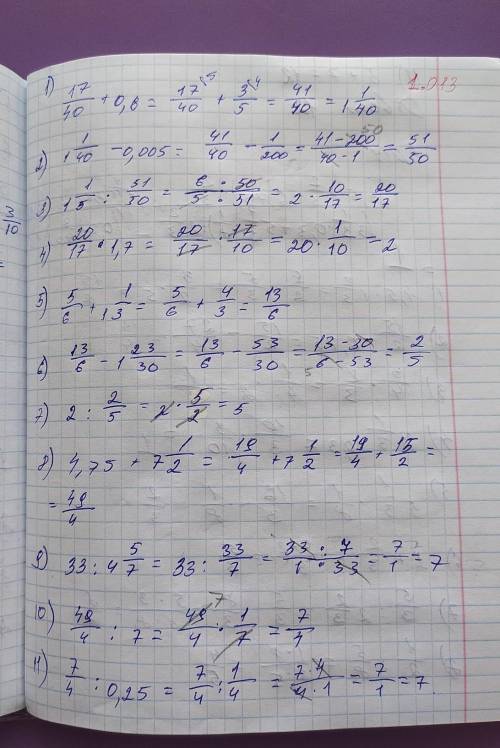 1.013
1) 17/40 + 0,6 = 17/40 + 3/5 ⁴ = 41/40 = 1 1/40
2) 1 1/40 - 0,005 = 41/40 - 1/200 = 41 - 200 50/40 - 1 = 51/50
3) 1 1/5 : 51/50 = 6 · 50/5 · 51 = 2 · 10/17 = 20/17
4) 20/17 · 1,7 = 20/17 · 17/10 = 20 · 1/10 = 2
5) 5/6 + 1 1/3 = 5/6 + 4/3 = 13/6
6) 13/6 - 1 23/30 = 13/6 - 53/30 = 13 - 30/6 - 53 = 2/5
7) 2 : 2/5 = 2 · 5/2 = 5
8) 4,75 + 7 1/2 = 19/4 + 7 1/2 = 19/4 + 15/2 =
= 49/4
9) 33 : 4 5/7 = 33 : 33/7 = 33 · 7/1 · 33 = 7/1 = 7
10) 49/4 : 7 = 49 7/4 · 1/7 = 7/4
11) 7/4 : 0,25 = 7/4 : 1/4 = 7 · 4/4 · 1 = 7/1 = 7
3/10
=